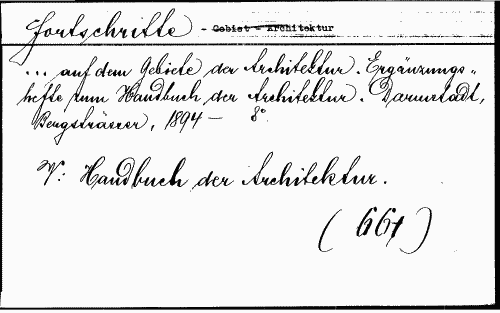 Fortschritte - Gebiet - Architektur
... auf dem Gebiete der Architektur. Ergänzungs-
hefte zum Handbuch der Architektur. Darmstadt,
Bergsträsser, 1894 - 8°
V: Handbuch der Architektur.
(661)